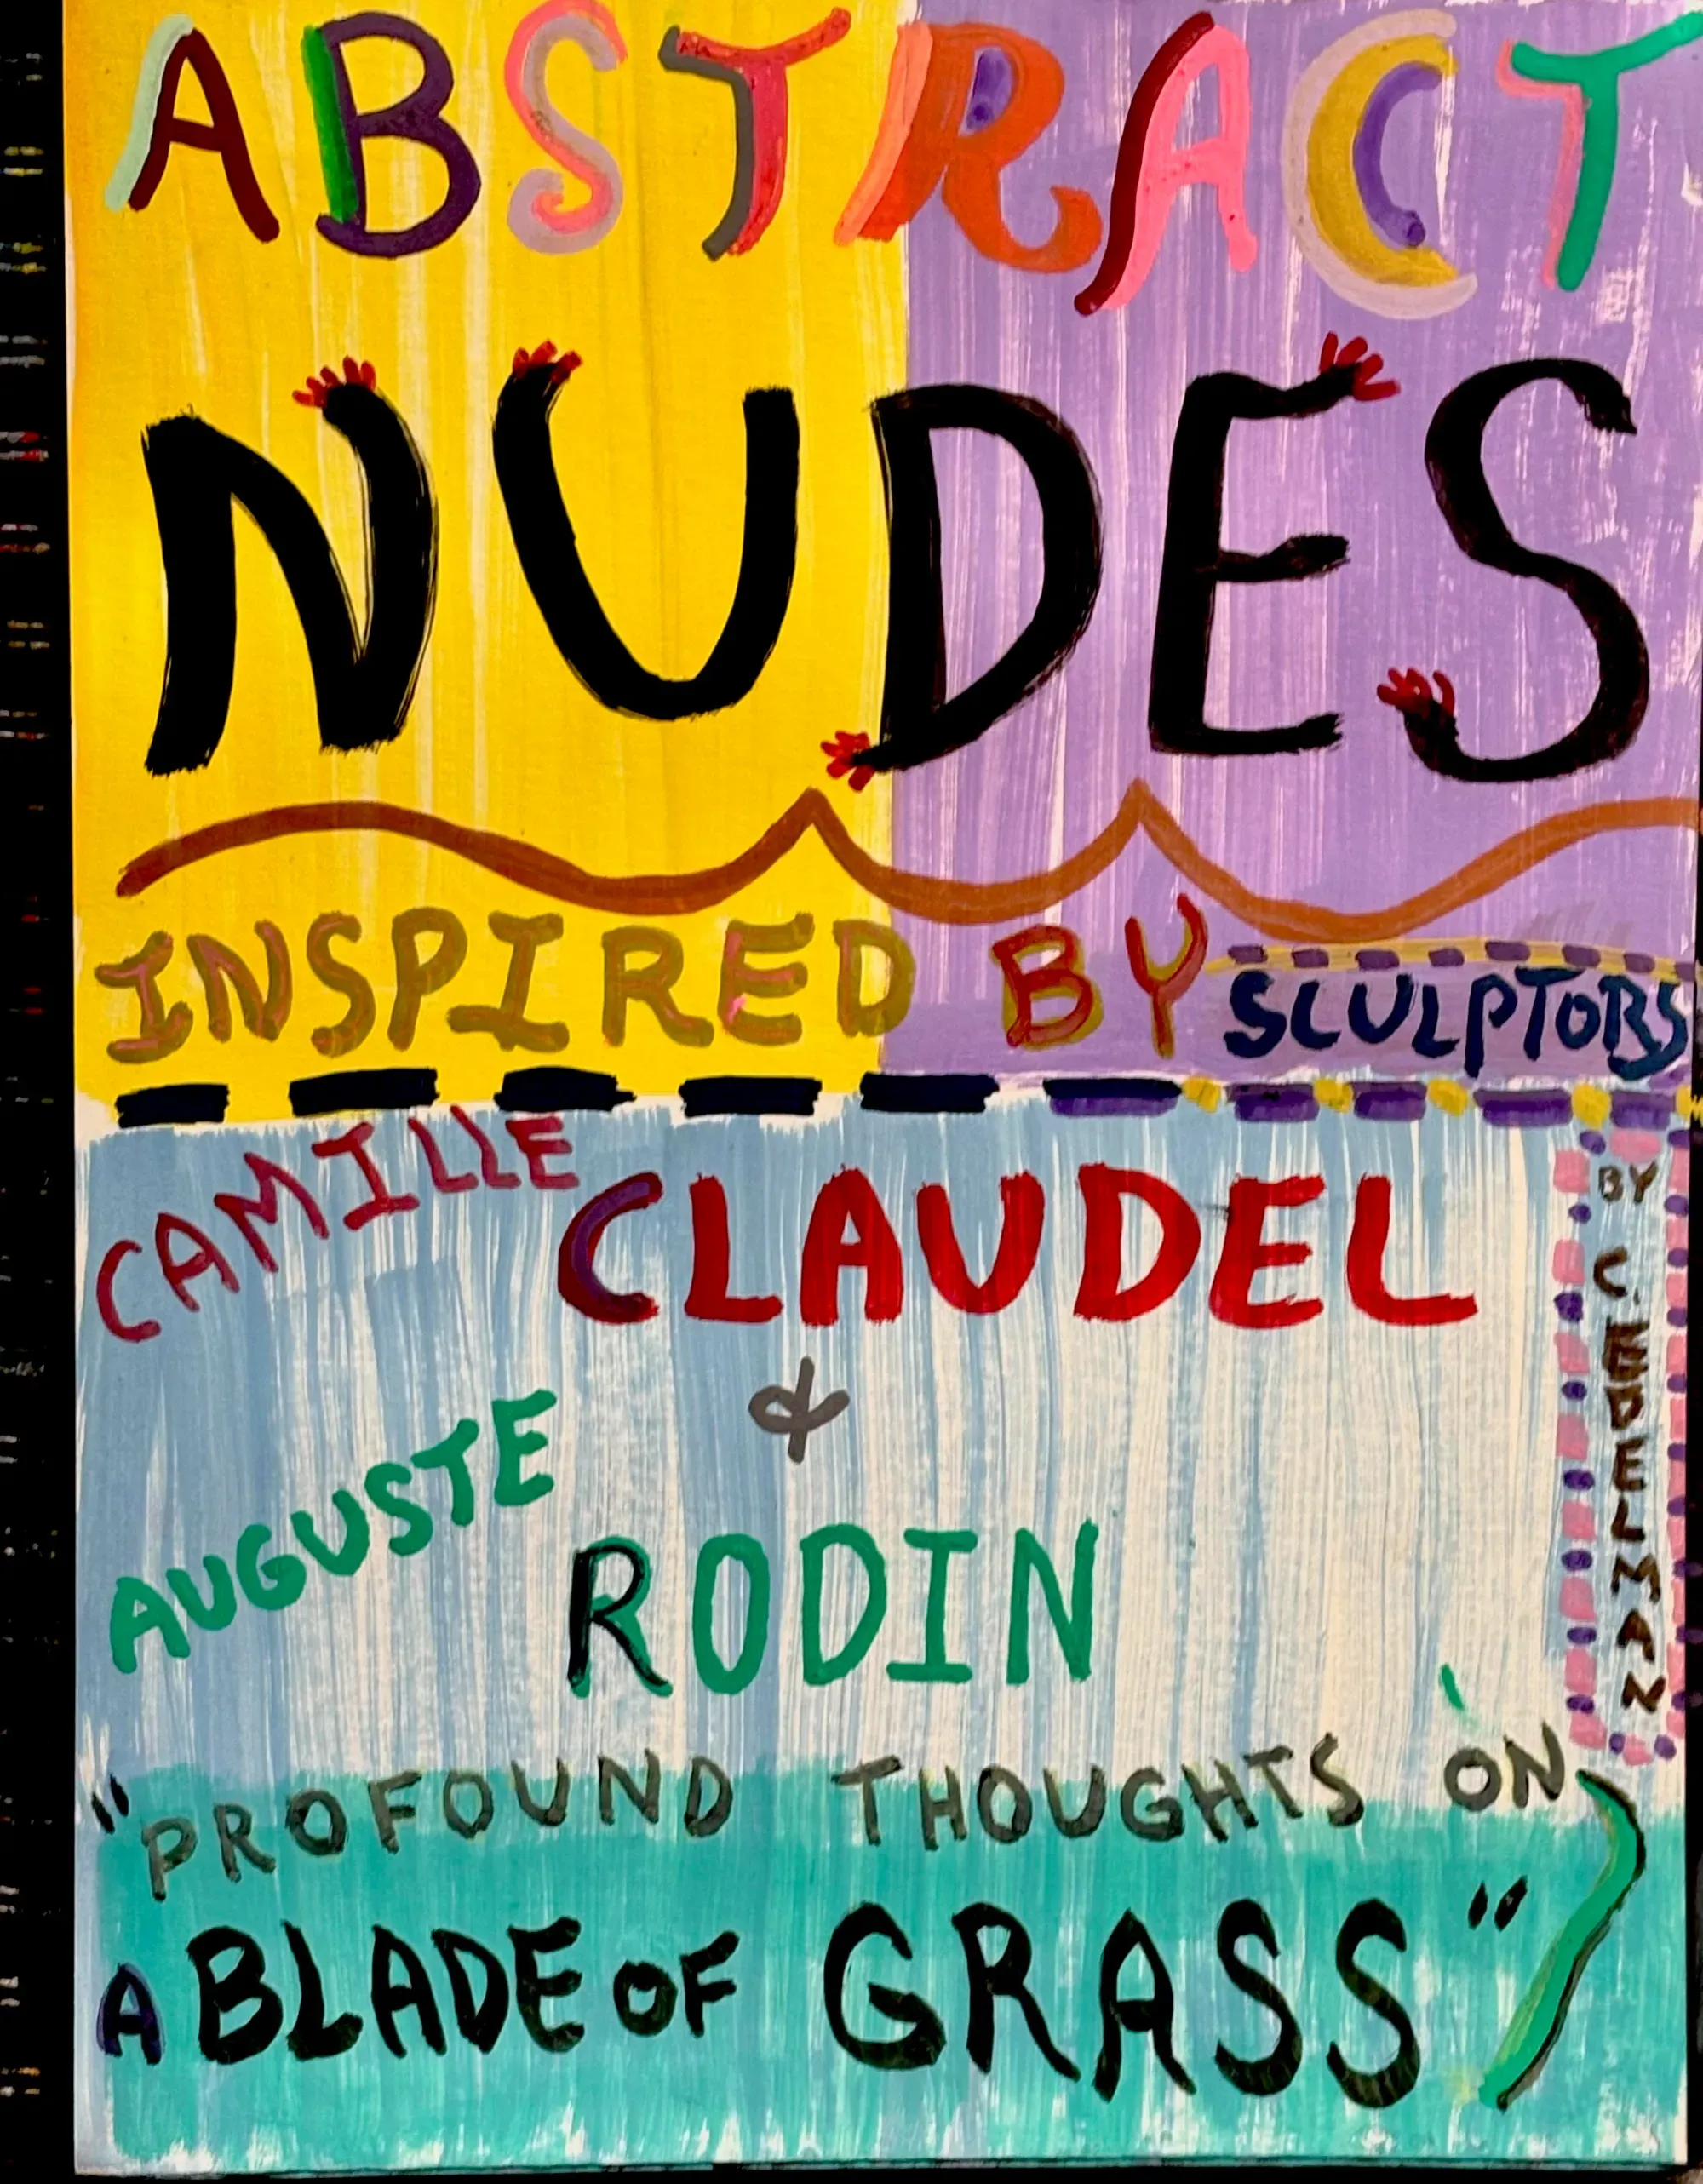 ABSTRACT
NUDES
INSPIRED BY SCULPTORS
CAMILLE CLAUDEL
&
AUGUSTE RODIN
BY C. EDELMAN
"PROFOUND THOUGHTS ON
A BLADE OF GRASS"